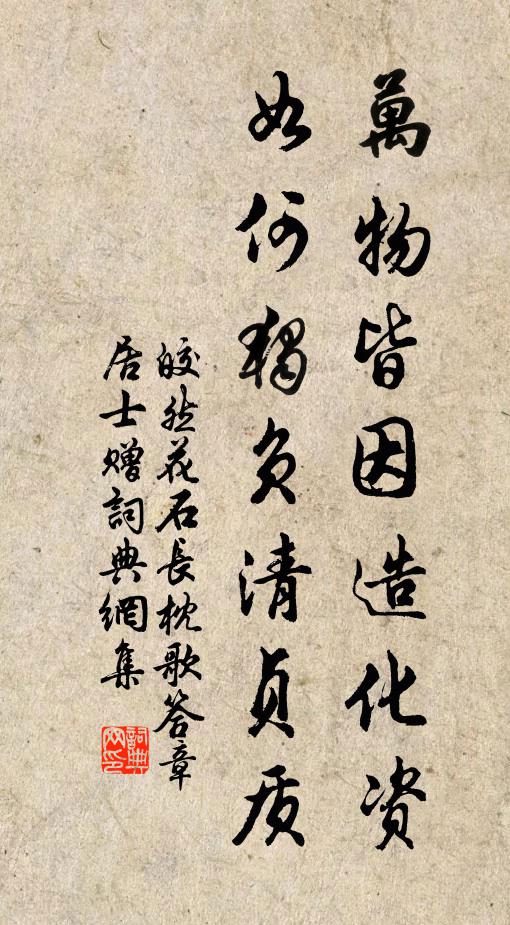 萬物皆因造化資
如何獨負清貞质
皎然花石長枕歌答章
居士贈詞典網集
詞典网印